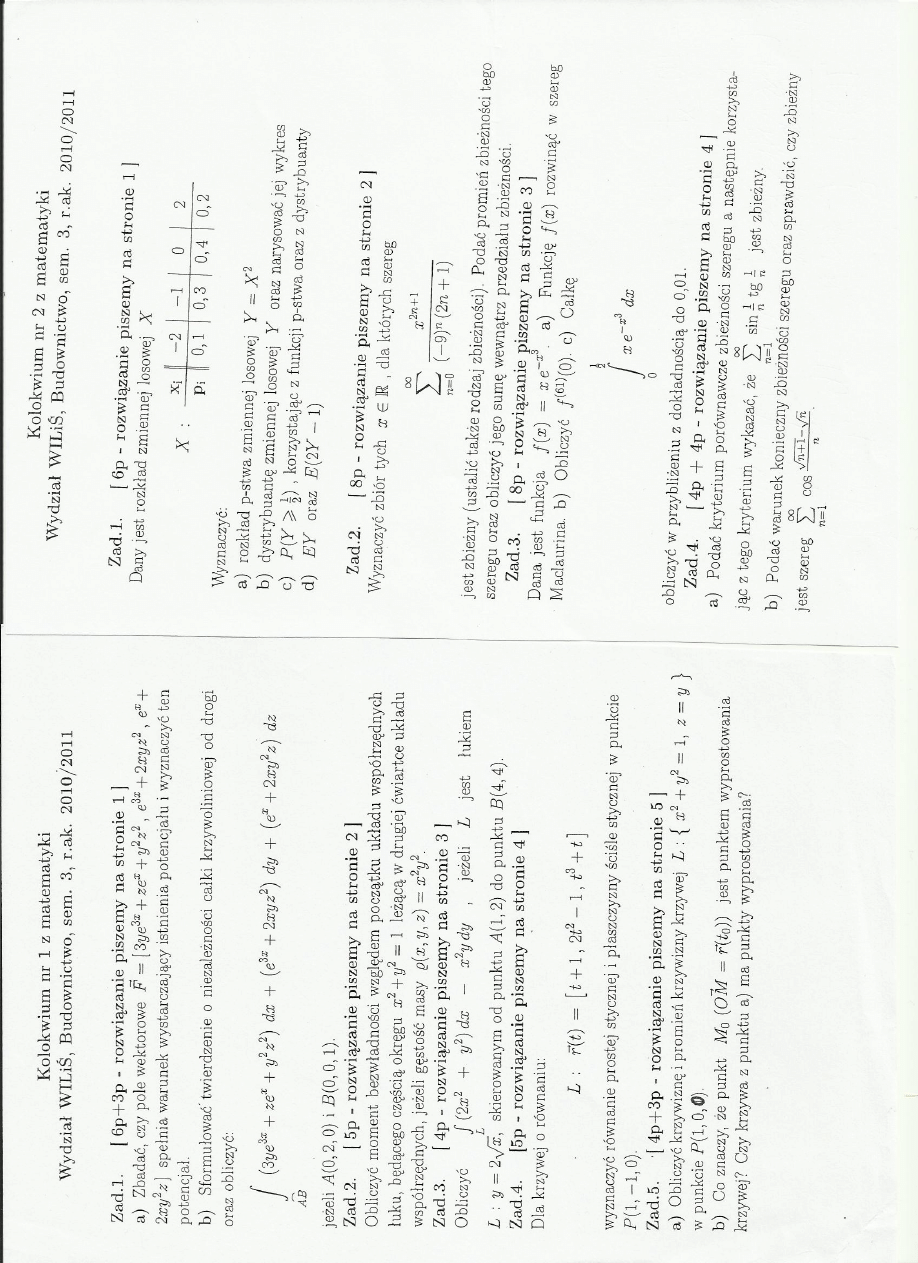 Kolokwium nr 1 z matematyki
Wydział WILiŚ, Budownictwo, sem. 3, r.ak. 2010/2011
Zad.1. [ 6p+3p - rozwiązanie piszemy na stronie 1 ]
a) Zbadać, czy pole wektorowe F⃗ = [ 3ye^{3x} + ze^x + y²z² , e^{3x} + 2xyz² , e^x +
2xy²z ] spełnia warunek wystarczający istnienia potencjału i wyznaczyć ten
potencjał.
b) Sformułować twierdzenie o niezależności całki krzywoliniowej od drogi
oraz obliczyć:
∫_{AB} (3ye^{3x} + ze^x + y²z²) dx + (e^{3x} + 2xyz²) dy + (e^x + 2xy²z) dz
jeżeli A(0, 2, 0) i B(0, 0, 1).
Zad.2. [ 5p - rozwiązanie piszemy na stronie 2 ]
Obliczyć moment bezwładności względem początku układu współrzędnych
łuku, będącego częścią okręgu x² + y² = 1 leżącą w drugiej ćwiartce układu
współrzędnych, jeżeli gęstość masy ϱ(x, y, z) = x²y².
Zad.3. [ 4p - rozwiązanie piszemy na stronie 3 ]
Obliczyć ∫_L (2x² + y²) dx − x²y dy , jeżeli L jest łukiem
L : y = 2√x, skierowanym od punktu A(1, 2) do punktu B(4, 4).
Zad.4. [5p - rozwiązanie piszemy na stronie 4 ]
Dla krzywej o równaniu:
L : r⃗(t) = [ t + 1 , 2t² − 1 , t³ + t ]
wyznaczyć równanie prostej stycznej i płaszczyzny ściśle stycznej w punkcie
P(1, −1, 0).
Zad.5. [ 4p+3p - rozwiązanie piszemy na stronie 5 ]
a) Obliczyć krzywiznę i promień krzywizny krzywej L : { x² + y² = 1, z = y }
w punkcie P(1, 0, 0).
b) Co znaczy, że punkt M₀ (OM⃗ = r⃗(t₀)) jest punktem wyprostowania
krzywej? Czy krzywa z punktu a) ma punkty wyprostowania?
Kolokwium nr 2 z matematyki
Wydział WILiŚ, Budownictwo, sem. 3, r.ak. 2010/2011
Zad.1. [ 6p - rozwiązanie piszemy na stronie 1 ]
Dany jest rozkład zmiennej losowej X
X : x_i ‖ −2 | −1 | 0 | 2
p_i ‖ 0,1 | 0,3 | 0,4 | 0,2
Wyznaczyć:
a) rozkład p-stwa zmiennej losowej Y = X²
b) dystrybuantę zmiennej losowej Y oraz narysować jej wykres
c) P(Y ⩾ ½) , korzystając z funkcji p-stwa oraz z dystrybuanty
d) EY oraz E(2Y − 1)
Zad.2. [ 8p - rozwiązanie piszemy na stronie 2 ]
Wyznaczyć zbiór tych x ∈ ℝ , dla których szereg
∑_{n=0}^{∞} x^{2n+1} / ((−9)^n (2n + 1))
jest zbieżny (ustalić także rodzaj zbieżności). Podać promień zbieżności tego
szeregu oraz obliczyć jego sumę wewnątrz przedziału zbieżności.
Zad.3. [ 8p - rozwiązanie piszemy na stronie 3 ]
Dana jest funkcja f(x) = x e^{−x³} . a) Funkcję f(x) rozwinąć w szereg
Maclaurina. b) Obliczyć f^{(61)}(0). c) Całkę
∫_0^{½} x e^{−x³} dx
obliczyć w przybliżeniu z dokładnością do 0,01.
Zad.4. [ 4p + 4p - rozwiązanie piszemy na stronie 4 ]
a) Podać kryterium porównawcze zbieżności szeregu a następnie korzysta-
jąc z tego kryterium wykazać, że ∑_{n=1}^{∞} sin 1/n tg 1/n jest zbieżny.
b) Podać warunek konieczny zbieżności szeregu oraz sprawdzić, czy zbieżny
jest szereg ∑_{n=1}^{∞} cos (√(n+1)−√n)/n .